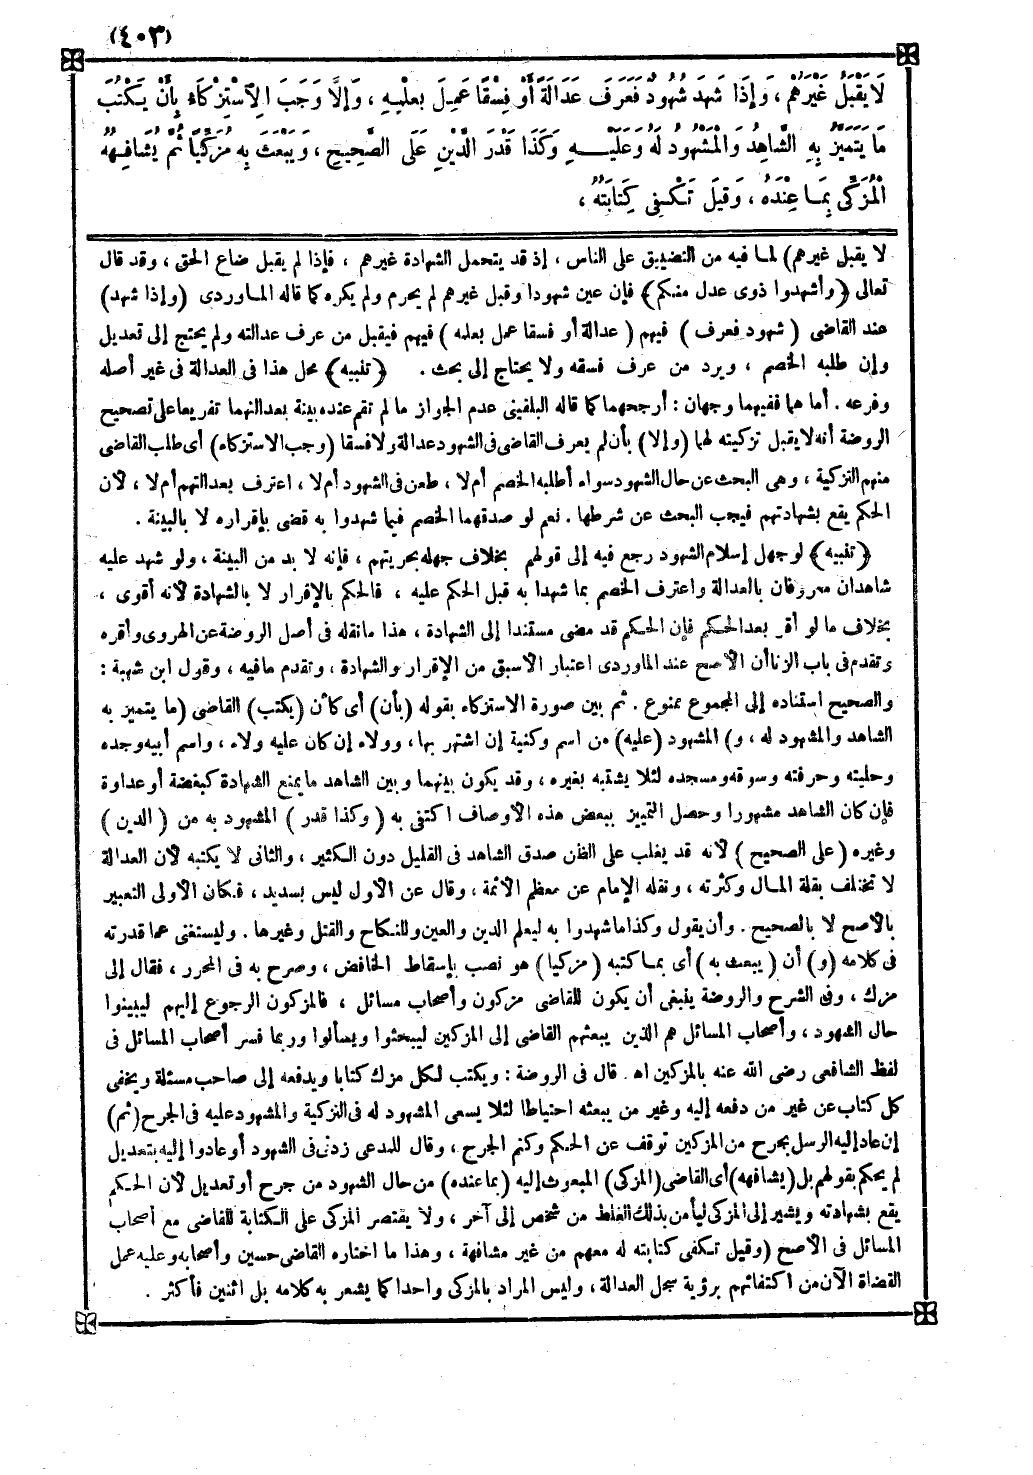 (٤٠٣)
لَا يَقْبَلُ غَيْرَهُمْ ، وَإِذَا شَهِدَ شُهُودٌ فَعَرَفَ عَدَالَةً أَوْ فِسْقًا عَمِلَ بِعِلْمِهِ ، وَإِلَّا وَجَبَ الِاسْتِزْكَاءُ بِأَنْ يَكْتُبَ
مَا يَتَمَيَّزُ بِهِ الشَّاهِدُ وَالْمَشْهُودُ لَهُ وَعَلَيْهِ وَكَذَا قَدْرَ الدَّيْنِ عَلَى الصَّحِيحِ ، وَيَبْعَثَ بِهِ مُزَكِّيًا ثُمَّ يُشَافِهُهُ
الْمُزَكِّي بِمَا عِنْدَهُ ، وَقِيلَ تَكْفِي كِتَابَتُهُ ،
لا يقبل غيرهم) لما فيه من التضييق على الناس ، إذ قد يتحمل الشهادة غيرهم ، فإذا لم يقبل ضاع الحق ، وقد قال
تعالى (وأشهدوا ذوى عدل منكم) فإن عين شهودا وقبل غيرهم لم يحرم ولم يكره كما قاله الماوردى (وإذا شهد)
عند القاضى (شهود فعرف) فيهم (عدالة أو فسقا عمل بعلمه) فيهم فيقبل من عرف عدالته ولم يحتج إلى تعديل
وإن طلبه الخصم ، ويرد من عرف فسقه ولا يحتاج إلى بحث . (تنبيه) محل هذا فى العدالة فى غير أصله
وفرعه . أما هما ففيهما وجهان : أرجحهما كما قاله البلقينى عدم الجواز ما لم تقم عنده بينة بعدالتهما تفريعا على تصحيح
الروضة أنه لا يقبل تزكيته لهما (وإلا) بأن لم يعرف القاضى فى الشهود عدالة ولا فسقا (وجب الاستزكاء) أى طلب القاضى
منهم التزكية ، وهى البحث عن حال الشهود سواء أطلبه الخصم أم لا ، طعن فى الشهود أم لا ، اعترف بعدالتهم أم لا ، لأن
الحكم يقع بشهادتهم فيجب البحث عن شرطها . نعم لو صدقهما الخصم فيما شهدوا به قضى بإقراره لا بالبينة .
(تنبيه) لو جهل إسلام الشهود رجع فيه إلى قولهم بخلاف جهله بحريتهم ، فإنه لا بد من البينة ، ولو شهد عليه
شاهدان معروفان بالعدالة واعترف الخصم بما شهدا به قبل الحكم عليه ، فالحكم بالإقرار لا بالشهادة لأنه أقوى ،
بخلاف ما لو أقر بعد الحكم فإن الحكم قد مضى مستندا إلى الشهادة ، هذا ما نقله فى أصل الروضة عن الهروى وأقره
وتقدم فى باب الزنا أن الأصح عند الماوردى اعتبار الأسبق من الإقرار والشهادة ، وتقدم ما فيه ، وقول ابن شهبة :
والصحيح استناده إلى المجموع ممنوع . ثم بين صورة الاستزكاء بقوله (بأن) أى كأن (يكتب) القاضى (ما يتميز به
الشاهد والمشهود له ، و) المشهود (عليه) من اسم وكنية إن اشتهر بها ، وولاء إن كان عليه ولاء ، واسم أبيه وجده
وحليته وحرفته وسوقه ومسجده لئلا يشتبه بغيره ، وقد يكون بينهما وبين الشاهد ما يمنع الشهادة كبغضة أو عداوة
فإن كان الشاهد مشهورا وحصل التمييز ببعض هذه الأوصاف اكتفى به (وكذا قدر) المشهود به من (الدين)
وغيره (على الصحيح) لأنه قد يغلب على الظن صدق الشاهد فى القليل دون الكثير ، والثانى لا يكتبه لأن العدالة
لا تختلف بقلة المال وكثرته ، ونقله الإمام عن معظم الأئمة ، وقال عن الأول ليس بسديد ، فكان الأولى التعبير
بالأصح لا بالصحيح . وأن يقول وكذا ما شهدوا به ليعلم الدين والعين وللنكاح والقتل وغيرها . وليستغنى عما قدرته
فى كلامه (و) أن (يبعث به) أى بما كتبه (مزكيا) هو نصب بإسقاط الخافض ، وصرح به فى المحرر ، فقال إلى
مزك ، وفى الشرح والروضة ينبغى أن يكون للقاضى مزكون وأصحاب مسائل ، فالمزكون الرجوع إليهم ليبينوا
حال الشهود ، وأصحاب المسائل هم الذين يبعثهم القاضى إلى المزكين ليبحثوا ويسألوا وربما فسر أصحاب المسائل فى
لفظ الشافعى رضى الله عنه بالمزكين اه . قال فى الروضة : ويكتب لكل مزك كتابا ويدفعه إلى صاحب مسئلة ويخفى
كل كتاب عن غير من دفعه إليه وغير من يبعثه احتياطا لئلا يسعى المشهود له فى التزكية والمشهود عليه فى الجرح (ثم)
إن عاد إليه الرسل بجرح من المزكين توقف عن الحكم وكتم الجرح ، وقال للمدعى زدنى فى الشهود أو عادوا إليه بتعديل
لم يحكم بقولهم بل (يشافهه) أى القاضى (المزكى) المبعوث إليه (بما عنده) من حال الشهود من جرح أو تعديل لأن الحكم
يقع بشهادته ويشير إلى المزكى ليأمن بذلك الغلط من شخص إلى آخر ، ولا يقتصر المزكى على الكتابة للقاضى مع أصحاب
المسائل فى الأصح (وقيل تكفى كتابته له معهم من غير مشافهة ، وهذا ما اختاره القاضى حسين وأصحابه وعليه عمل
القضاة الآن من اكتفائهم برؤية سجل العدالة ، وليس المراد بالمزكى واحدا كما يشعر به كلامه بل اثنين فأكثر .